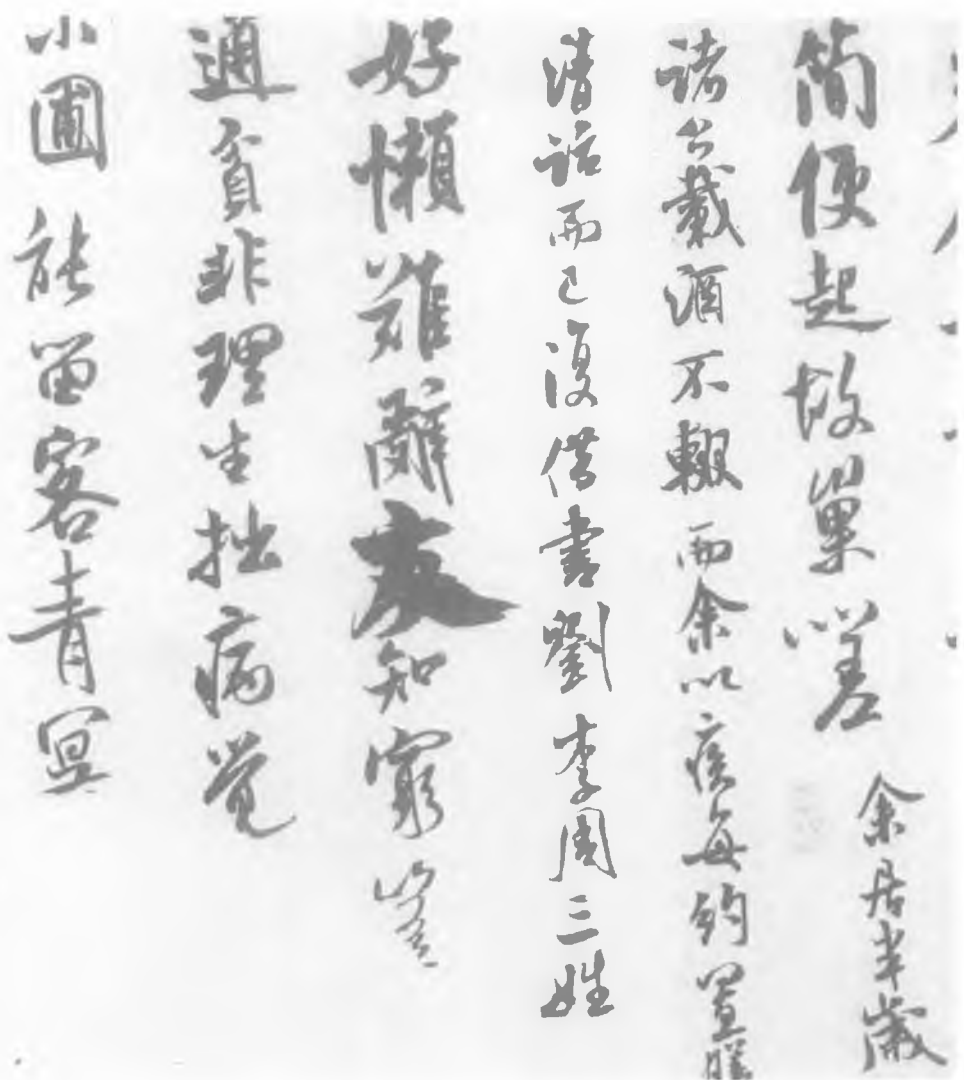 簡便起故巢嗟
余居半歲
諸公載酒不輟而余以疾每約置膳
清話而已復借書劉李周三姓
好懶難辭友知窮豈
通貧非理生拙病覺
小圃能留客青冥